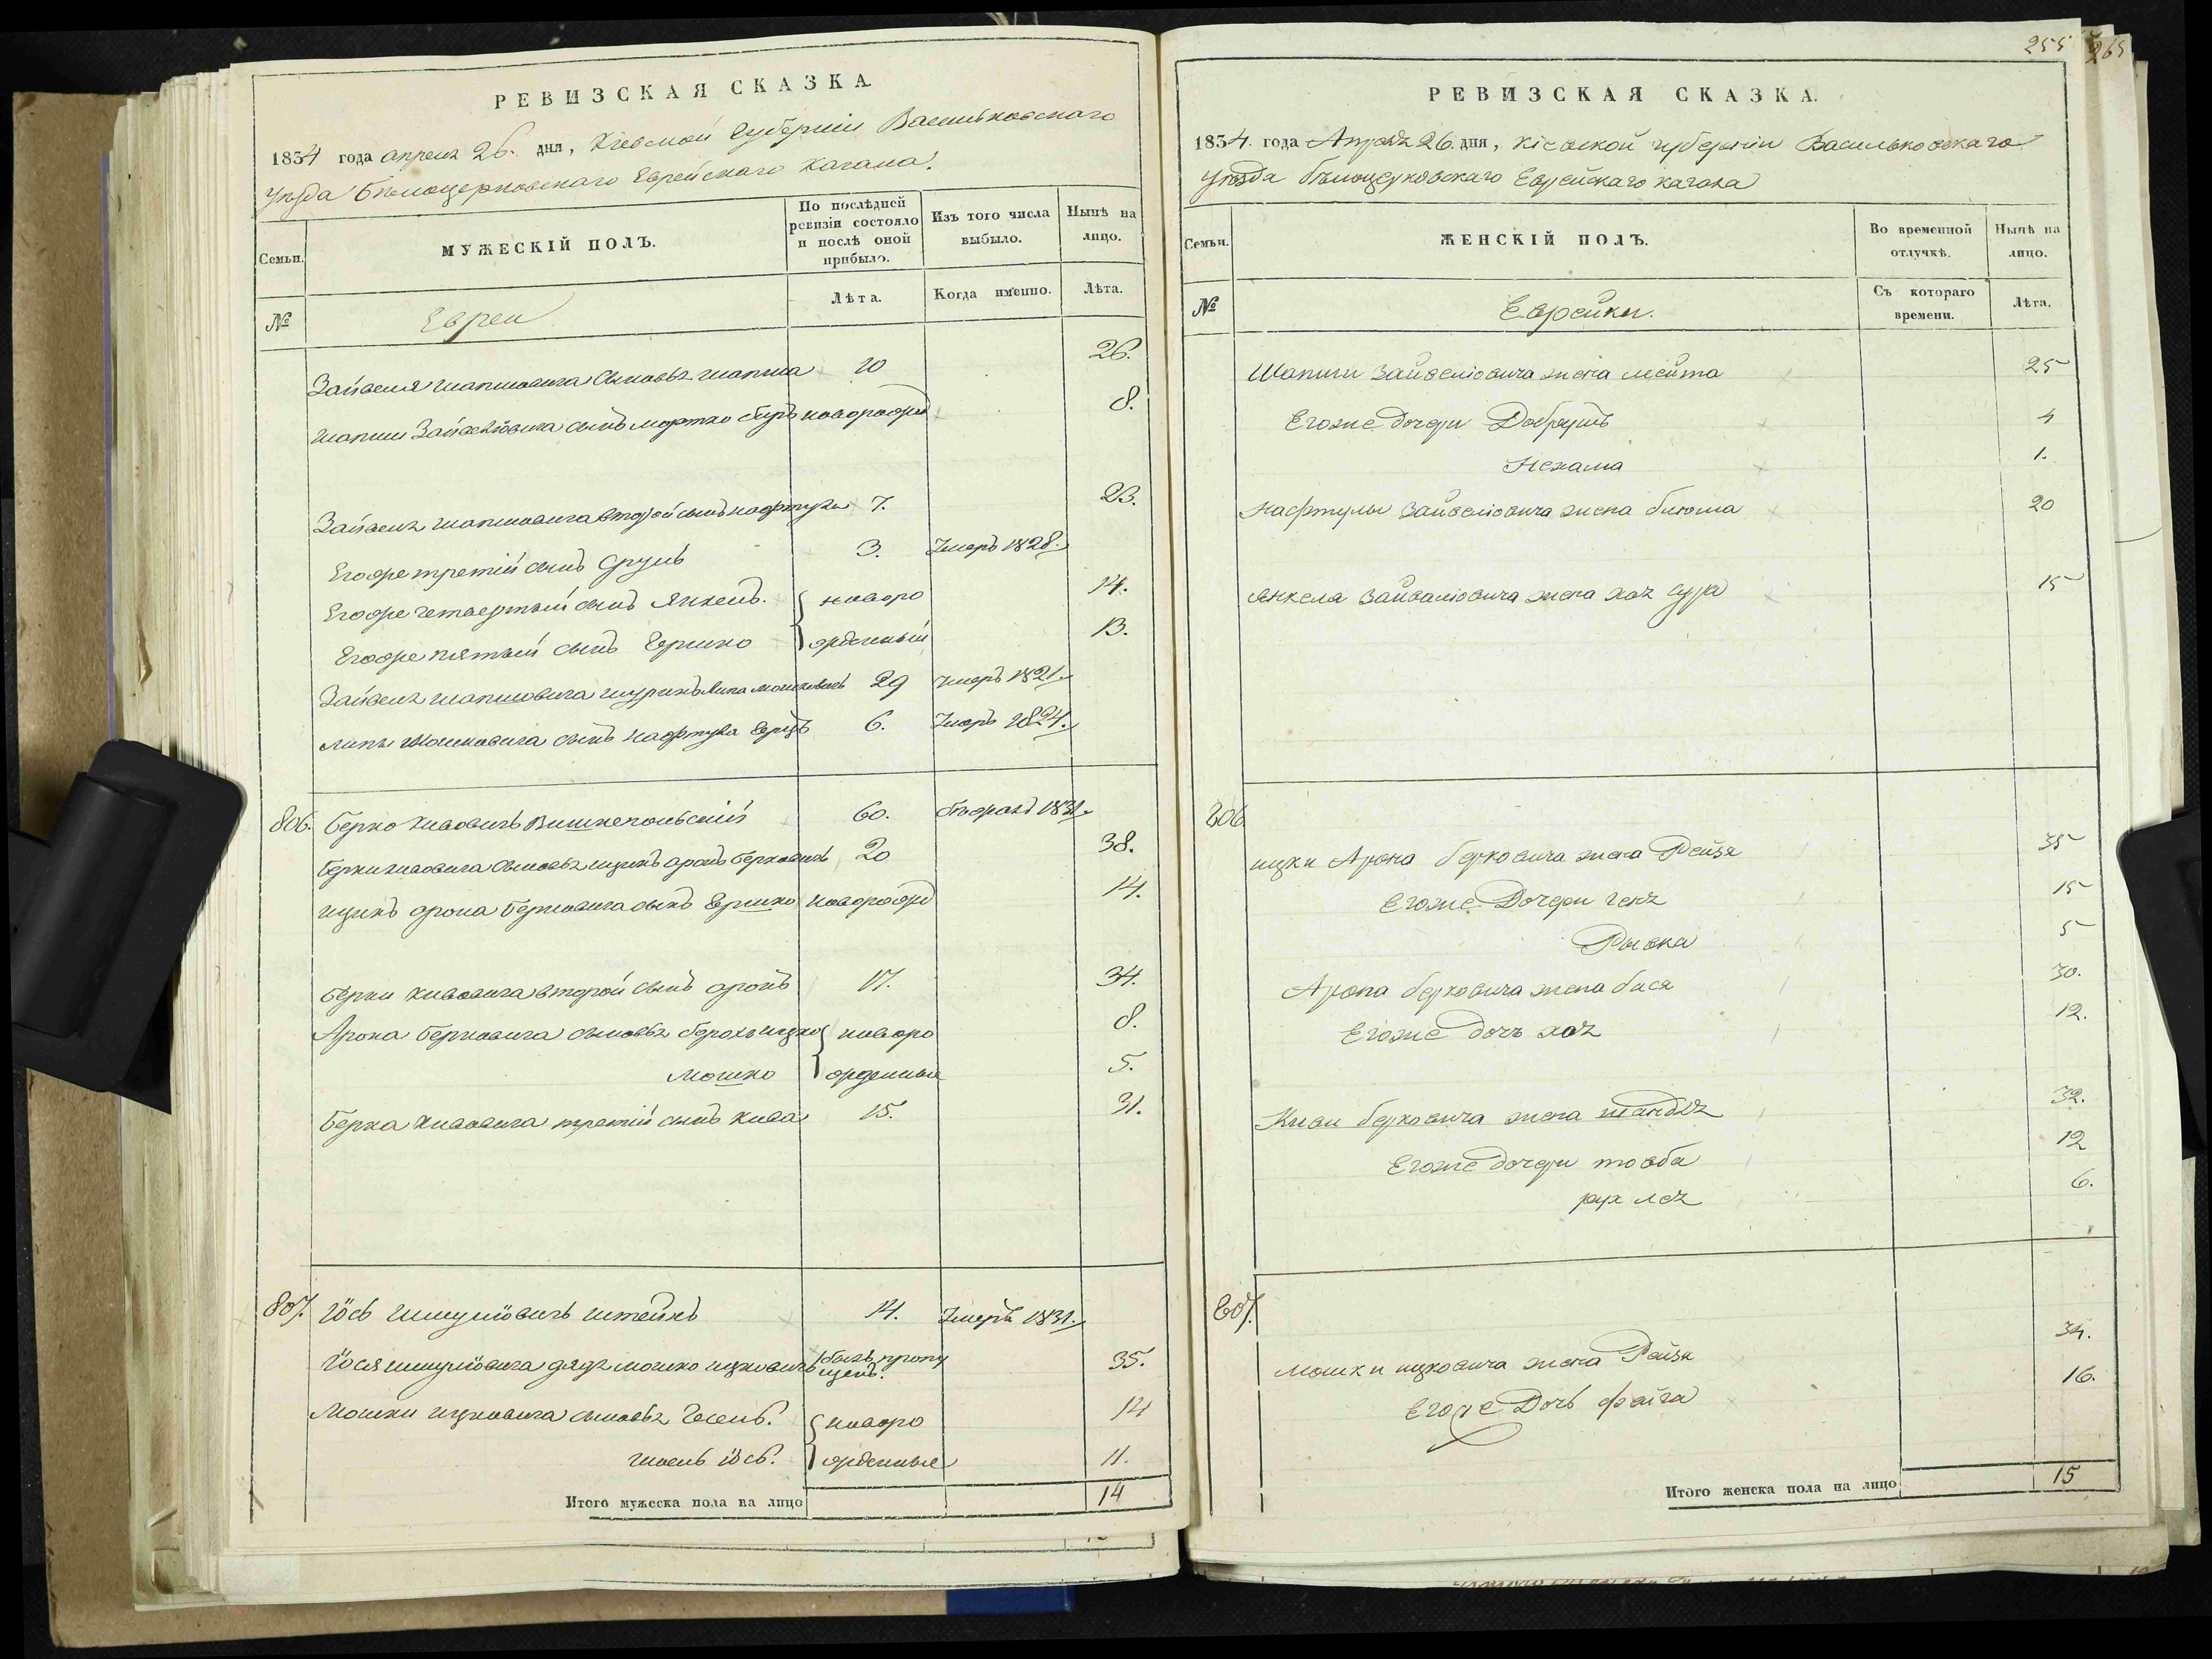 РЕВИЗСКАЯ СКАЗКА
1834 года апреля 26. дня, Кіевской Губерніи Васильковскаго
Уѣзда Бѣлоцерковскаго Еврейскаго Кагала.
Семьи.
МУЖЕСКІЙ ПОЛЪ.
По послѣдней ревизіи состояло и послѣ оной прибыло.
Изъ того числа выбыло.
Нынѣ на лицо.
№
Евреи
Лѣта.
Когда именно.
Лѣта.
Зайвеля Шапшовича сыновья Шапша 10 26.
Шапши Зайвеліовича сынъ Мортко новорожд 8.
Зайвеля Шапшовича второй сынъ Нафтула 7. 23.
Егоже третій сынъ Сруль 3. Умеръ 1828.
Егоже четвертый сынъ Янкель. новоро 14.
Егоже пятый сынъ Гершко жденный 13.
Зайвеля Шапшовича шуринъ Липа Мошковичъ 29 Умеръ 1821.
Липы Мошковича сынъ Нафтула Герцъ 6. Умеръ 1824.
806. Берко Кивовичъ Вишнепольскій 60. 1831.
Берки Кивовича сыновья Ицикъ Аронъ Берковичъ 20 38.
Ицикъ Арона Берковича сынъ Гершко новорожд 14.
Берки Кивовича второй сынъ Аронъ 17. 34.
Арона Берковича сыновья Борохъ Ицко новоро 8.
Мошко жденные 5.
Берка Кивовича третій сынъ Кива 15. 31.
807. Іось Шмуліовичъ Штейнъ 14. Умеръ 1831.
Іося Шмуліовича дядя Мошко Ицковичъ былъ пропущенъ. 35.
Мошки Ицковича сыновья новоро 14
Іось. жденные 11.
Итого мужеска пола на лицо 14
255
265
РЕВИЗСКАЯ СКАЗКА.
1834. года Апреля 26. дня, Кіевской губерніи Васильковскаго
Уѣзда бѣлоцерковскаго Еврейскаго кагала
Семьи.
ЖЕНСКІЙ ПОЛЪ.
Во временной отлучкѣ.
Нынѣ на лицо.
№
Еврейки.
Съ котораго времени.
Лѣта.
Шапши Зайвеліовича жена Лейта 25
Егоже дочери Добрушъ 4
Нехама 1.
Нафтулы Зайвеліовича жена блюма 20
Янкеля Зайвеліовича жена хая сура 15
806
ицки Арона берковича жена Рейзя 35
Егоже Дочери геня 15
Рывка 5
Арона берковича жена бася 30.
Егоже дочь хая 12.
Киви берковича жена шандля 32.
Егоже дочери товба 12
рухлея 6.
807.
мошки ицковича жена Рейзя 34.
Егоже Дочь фейга 16.
Итого женска пола на лицо 15